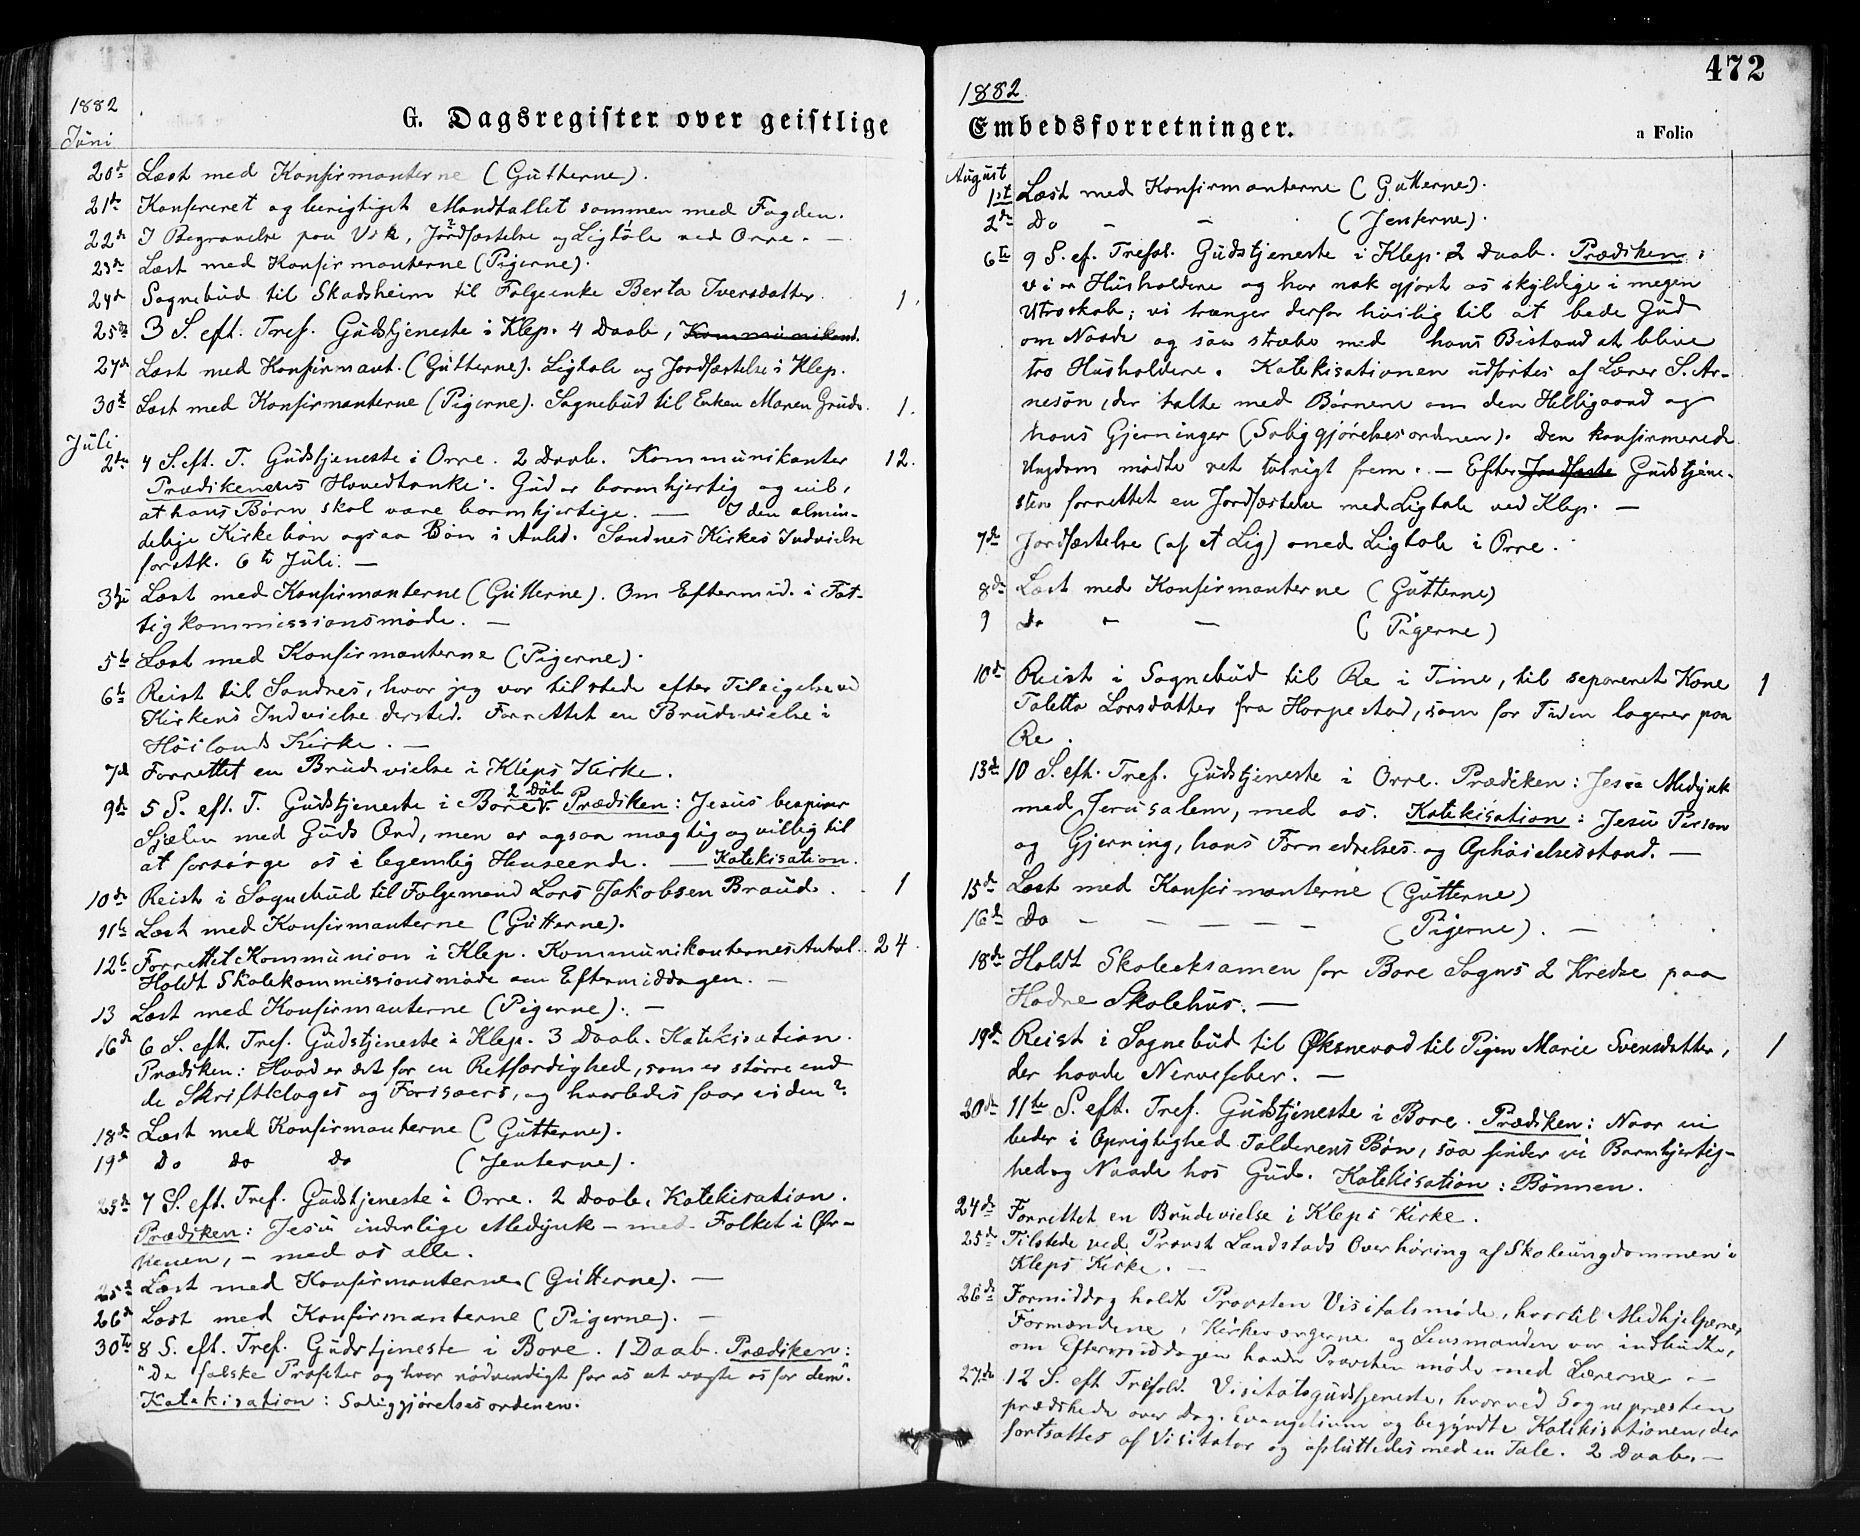 1882
G. Dagsregister over geistlige
Juni
20de Læst med Konfirmanterne (Gutterne).
21de Konfereret og berigtiget Mandtallet sammen med Fogden.
22de I Begravelse paa Vik, Jordfæstelse og Ligtale ved Orre. —
23de Læst med Konfirmanterne (Pigerne).
24de Sognebud til Skadsheim til Folgeenke Berta Iversdatter. 1.
25de 3 S. eft. Tref. Gudstjeneste i Klep. 4 Daab, Kommunikant.
27de Læst med Konfirmant. (Gutterne). Ligtale og Jordfæstelse i Klep.
30te Læst med Konfirmanterne (Pigerne). Sognebud til Enken Maren Grude. 1.
Juli
2den 4 S. eft. T. Gudstjeneste i Orre. 2 Daab. Kommunikanter 12.
Prædikenens Hovedtanke: Gud er barmhjertig og vil,
at hans Børn skal være barmhjertige. — I den almin-
delige Kirkebøn ogsaa Bøn i Anled. Sandnes Kirkes Indvielse
forstk. 6te Juli. —
3die Læst med Konfirmanterne (Gutterne). Om Eftermid. i Fat-
tigkommissionsmøde. —
5te Læst med Konfirmanterne (Pigerne).
6te Reist til Sandnes, hvor jeg var tilstede efter Tilsigelse ved
Kirkens Indvielse dersted. Forrettet en Brudevielse i
Høilands Kirke. —
7de Forrettet en Brudevielse i Kleps Kirke.
2 Dåb
9de 5 S. eft. T. Gudstjeneste i Bore. Prædiken: Jesus bespiser
Sjælen med Guds Ord, men er ogsaa mægtig og villig til
at forsørge os i legemlig Henseende. — Katekisation.
10de Reist i Sognebud til Folgemand Lars Jakobsen Braud. 1
11te Læst med Konfirmanterne (Gutterne).
12te Forrettet Kommunion i Klep. Kommunikanternes Antal. 24.
Holdt Skolekommissionsmøde om Eftermiddagen. —
13 Læst med Konfirmanterne (Pigerne). —
16de 6 S. eft. Tref. Gudstjeneste i Klep. 3 Daab. Katekisation.
Prædiken: Hvad er det for en Retfærdighed, som er større end
de Skriftkloges og Farisæers, og hvorledes faar vi den?
18de Læst med Konfirmanterne (Gutterne).
19de Do do do (Jenterne).
23de 7 S. eft. Tref. Gudstjeneste i Orre. 2 Daab. Katekisation.
Prædiken: Jesu inderlige Medynk – med Folket i Ør-
kenen, – med os alle.
25de Læst med Konfirmanterne (Gutterne). —
26de Læst med Konfirmanterne (Pigerne). —
30te 8 S. eft. Tref. Gudstjeneste i Bore. 1 Daab. Prædiken:
"De falske Profeter og hvor nødvendigt for os at vogte os for dem".
Katekisation: Saliggjørelsesordenen.
472
1882
Embedsforretninger.
a Folio
August
1st Læst med Konfirmanterne (Gutterne).
2de Do – – (Jenterne).
6te 9 S. ef. Trefol. Gudstjeneste i Klep. 2 Daab. Prædiken:
vi er Husholdere og har nok gjort os skyldige i megen
Utroskab; vi trænger derfor hvilig til at bede Gud
om Naade og saa stræbe med hans Bistand at blive
tro Husholdere. Katekisationen udførtes af Lærer S. Ar-
nesøn, der talte med Børnene om den Helligaand og
hans Gjerninger (Saliggjørelsesordnen). Den konfirmerede
Ungdom mødte ret talrigt frem. – Efter Jordfæste Gudstjene-
sten forrettet en Jordfæstelse med Ligtale ved Klep. —
7de Jordfæstelse (af et Lig) med Ligtale i Orre.
8de Læst med Konfirmanterne (Gutterne)
9 do – – (Pigerne)
10de Reist i Sognebud til Re i Time, til separeret Kone 1
Taletta Larsdatter fra Horpestad, som for Tiden lagerer paa
Re.
13de 10 S. eft. Tref. Gudstjeneste i Orre. Prædiken: Jesu Medynk
med Jerusalem, med os. Katekisation: Jesu Person
og Gjerning, hans Fornedrelses- og Ophøielsesstand. —
15de Læst med Konfirmanterne (Gutterne)
16de Do – – – – (Pigerne). —
18de Holdt Skoleeksamen for Bore Sogns 2 Kredse paa
Hodne Skolehus. —
19de Reist i Sognebud til Øksnevad til Pigen Marie Svensdatter, 1
der havde Nervefeber. —
20de 11te S. eft. Tref. Gudstjeneste i Bore. Prædiken: Naar vi
beder i Oprigtighed Tolderens Bøn, saa finder vi Barmhjertig-
hed og Naade hos Gud. Katekisation: Bønnen.
24de Forrettet en Brudevielse i Kleps Kirke.
25de Tilstede ved Provst Landstads Overhøring af Skoleungdommen i
Kleps Kirke. —
26de Formiddag holdt Provsten Visitatsmøde, hvortil Medhjelperne,
Formændene, Kirkeværgerne og Lensmanden var indbudte,
om Eftermiddagen havde Provsten møde med Lærerne. —
27de 12 S. eft Trefold. Visitatsgudstjeneste, hvorved Sognepræsten
prædikede over Dag. Evangelium og begyndte Katekisationen, der
fortsattes af Visitator og afsluttedes med en Tale. 2 Daab. —